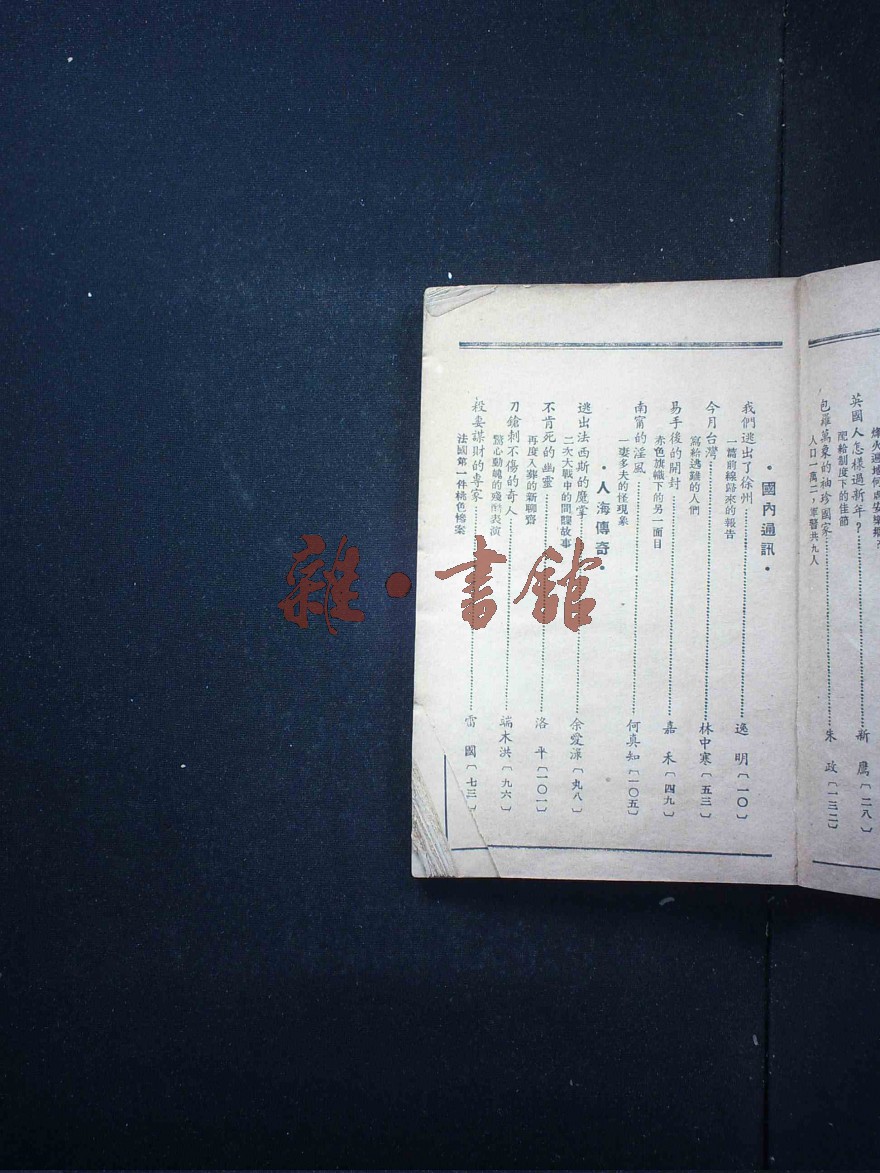 英國人怎樣過新年？……新 鷹〔二八〕
配給制度下的佳節
包羅萬象的袖珍國家……朱 政〔一三二〕
人口一萬二，軍醫共九人
・國內通訊・
我們逃出了徐州……逸 明〔一〇〕
一篇前線歸來的報告
今月台灣……林中寒〔五三〕
寫給逃難的人們
易手後的開封……嘉 禾〔四九〕
赤色旗幟下的另一面目
南甯的淫風……何真知〔一〇五〕
一妻多夫的怪現象
・人海傳奇・
逃出法西斯的魔掌……余愛渌〔九八〕
二次大戰中的間諜故事
不肯死的幽靈……洛 平〔一〇一〕
再度入葬的新聊齋
刀鎗刺不傷的奇人……端木洪〔九六〕
驚心動魄的殘酷表演
殺妻謀財的專家……雷 國〔七三〕
法國第一件桃色慘案
雜・書館